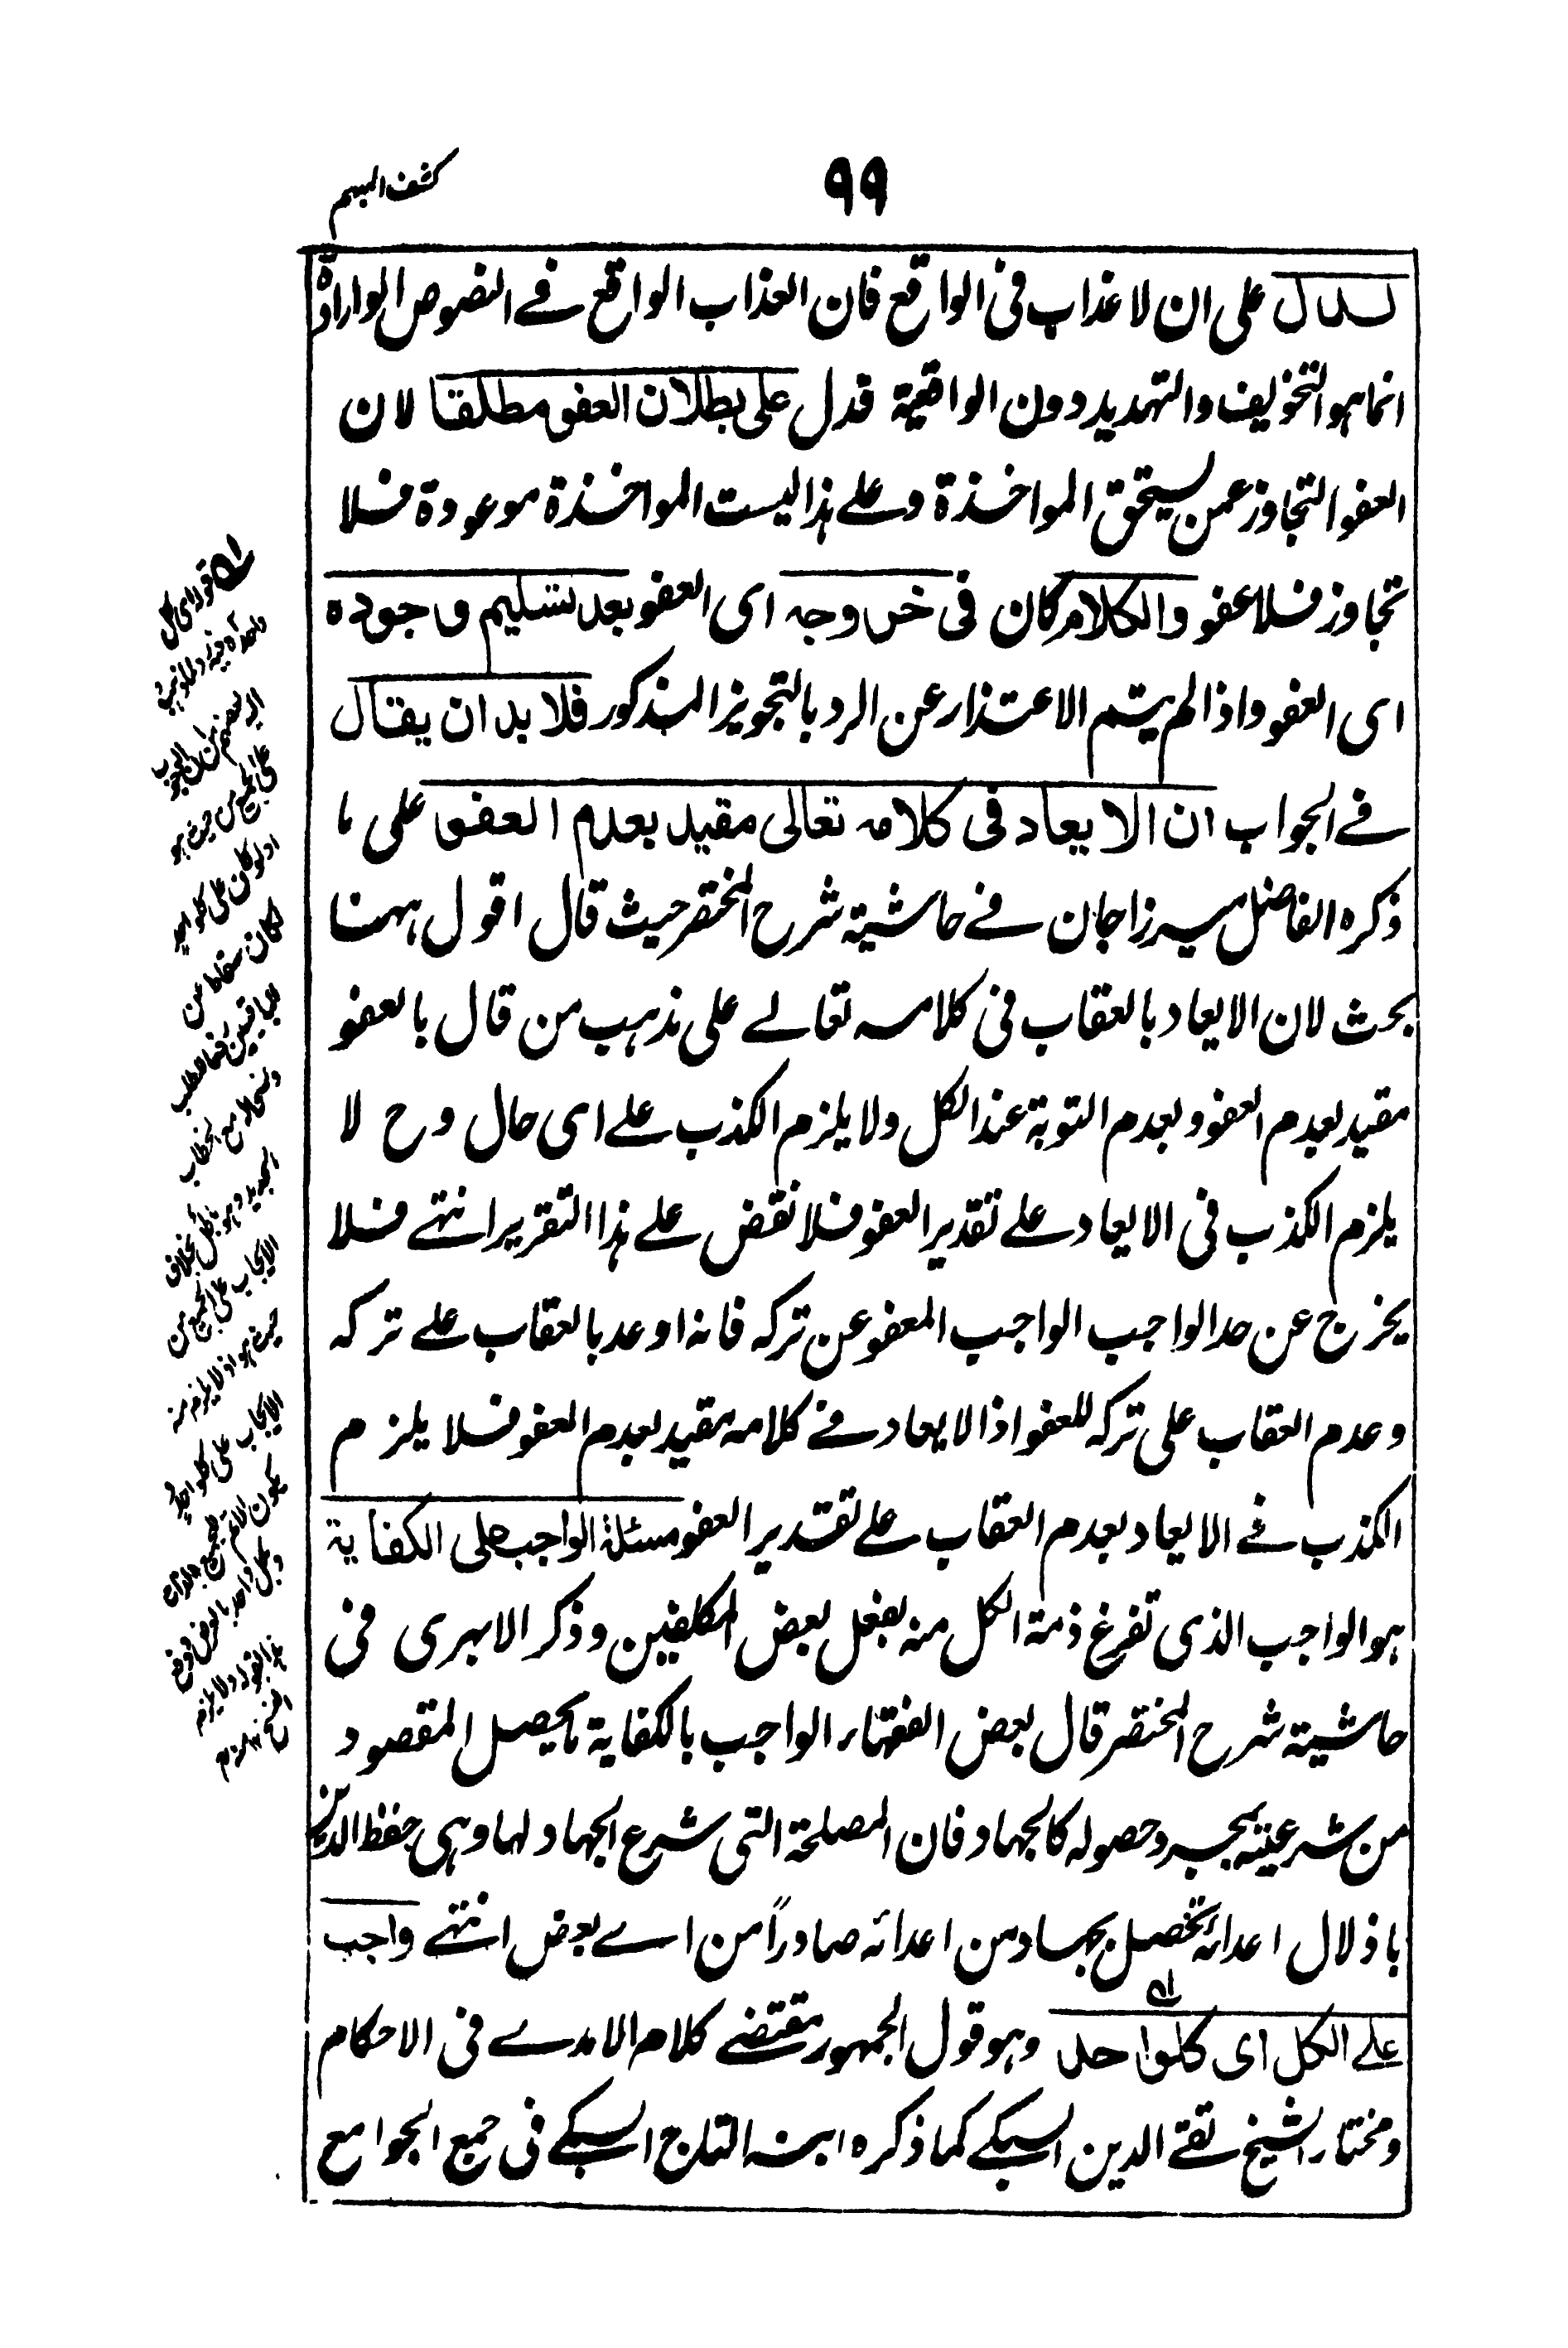 ٩٩
كشف المبهم
لدال على ان لا عذاب فى الواقع فان العذاب الواقع فے النصوص الواردة
انما هو التخويف والتهديد دون الواقعية فدل على بطلان العفو مطلقا لان
العفو التجاوز عمن يستحق المواخذة وعلے هذا ليست المواخذة موعودة فلا
تجاوز فلا عفو والكلام كان فى خروجه اى العفو بعد تسليم وجوده
اى العفو واذا لم يتم الاعتذار عن الرد بالتجويز المذكور فلا بد ان يقال
فے الجواب ان الايعاد فى كلامه تعالى مقيد بعدم العفو على ما
ذكره الفاضل ميرزا جان فے حاشية شرح المختصر حيث قال اقول ههنا
بحث لان الايعاد بالعقاب فى كلامه تعالے على مذهب من قال بالعفو
مقيد بعدم العفو وبعدم التوبة عند الكل ولا يلزم الكذب علے اى حال وح لا
يلزم الكذب فى الايعاد علے تقدير العفو فلا نقض علے هذا التقرير انتهے فلا
يخرج عن حد الواجب الواجب المعفو عن تركه فانه اوعد بالعقاب علے تركه
وعدم العقاب على تركه للعفو اذ الايعاد فے كلامه مقيد بعدم العفو فلا يلزم
الكذب فے الايعاد بعدم العقاب علے تقدير العفو مسئلة الواجب على الكفاية
هو الواجب الذى تفرغ ذمة الكل منه بفعل بعض المكلفين وذكر الابهرى فى
حاشية شرح المختصر قال بعض الفقهاء الواجب بالكفاية ما يحصل المقصود
من شرعيته بمجرد حصوله كالجهاد فان المصلحة التى شرع الجهاد لها وهى حفظ الدين
باذلال اعدائه تحصل بجهاد من اعدائه صادراً من اے بعض انتهے واجب
علے الكل اى كل واحد وهو قول الجمهور مقتضے كلام الامدے فى الاحكام
ومختار الشيخ تقے الدين السبكے كما ذكره ابنه التاج السبكے فى جمع الجوامع
قوله اى كل
على الجميع من حيث هو
لكان
الايجاب على الجميع من
حيث هو اذ لا يلزم منه
الايجاب على كل واحد